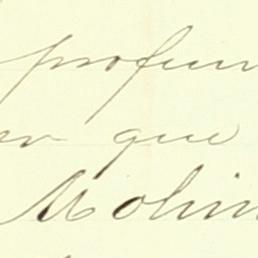 profun
que
Molin